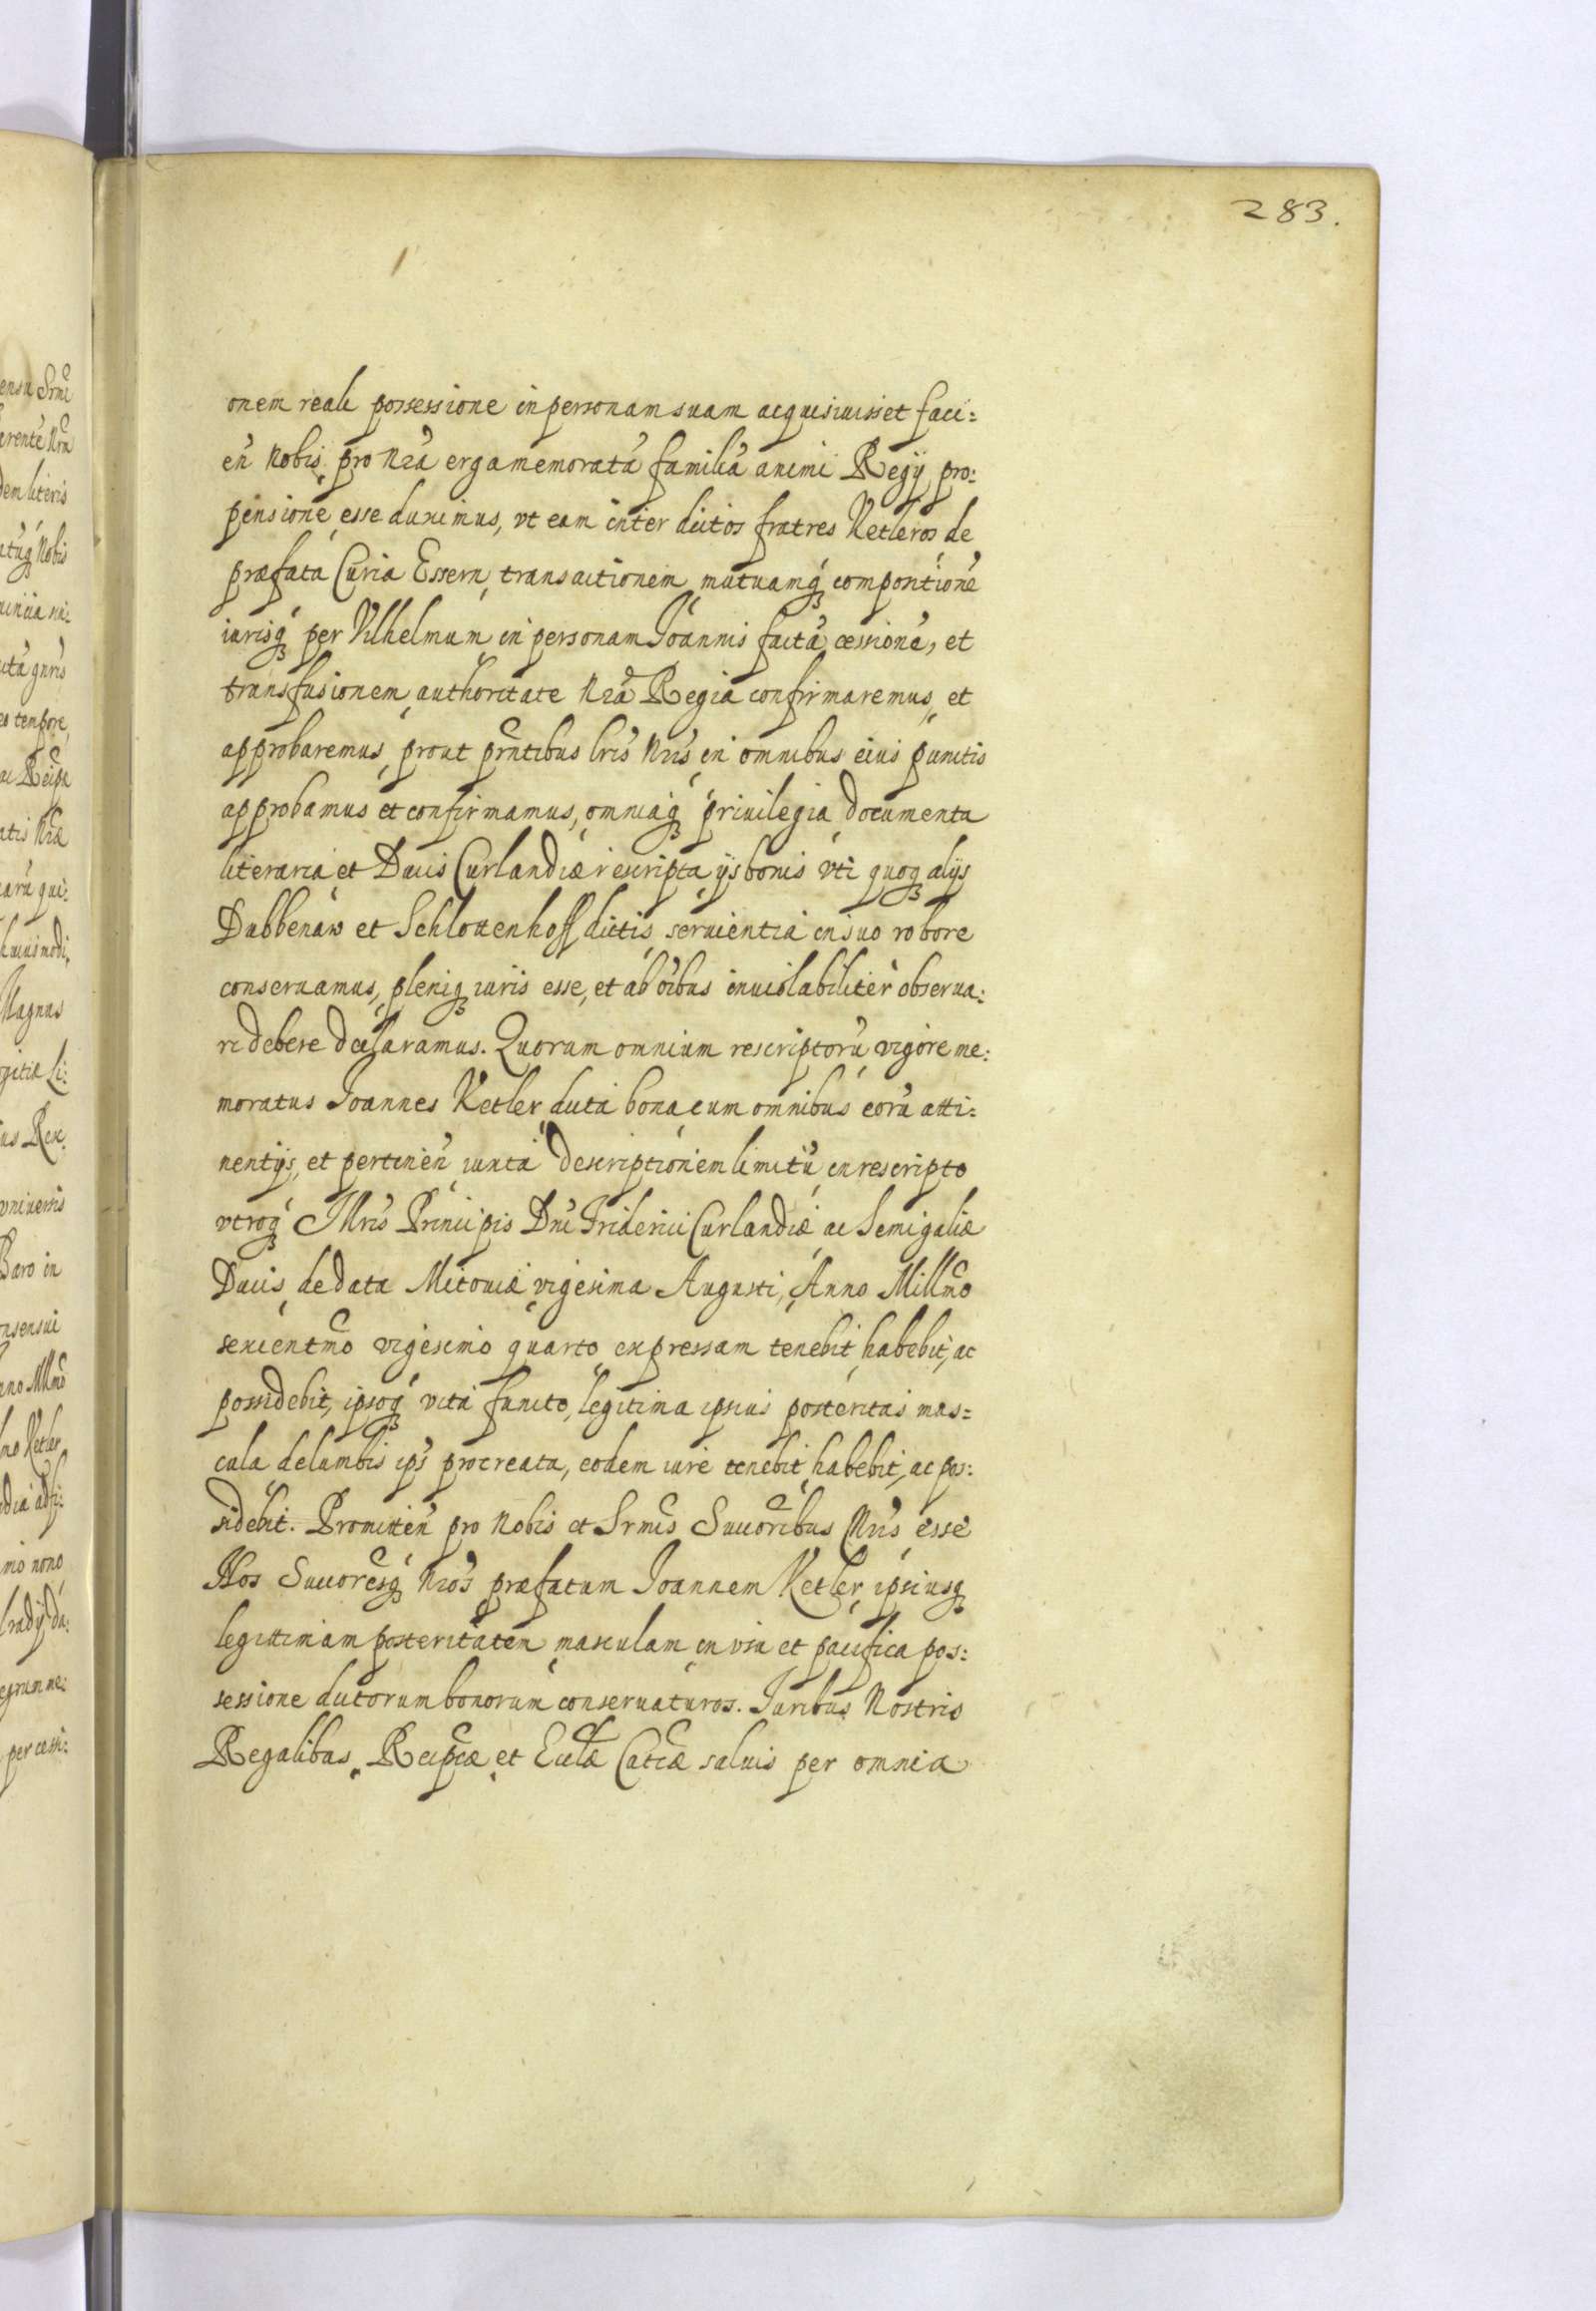 283.
onem reali possessione in personam suam acquisiuisset faci=
eñ Nobis pro Nrã erga memoratã familiã animi Regÿ pro:
pensione esse duximus, vt eam inter dictos fratres Ketleros de
præfata Curia Essern, transactionem mutuamqꝫ compositione
iurisqꝫ per Vilhelmum in personam Joannis factã cessionẽ, et
transfusionem authoritate Nrã Regia confirmaremus et
approbaremus prout prñtibus lris Nris in omnibus eius punctis
approbamus et confirmamus, omniaqꝫ priuilegia documenta
literaria et Ducis Curlandiæ rescripta ÿs bonis vti quoqꝫ alÿs
Dubbenaw et Schlottenhoff dictis seruientia in suo robore
conseruamus, pleniqꝫ iuris esse, et ab oĩbus inuiolabiliter obserua:
ri debere declaramus. Quorum omnium rescriptorũ vigore me:
moratus Joannes Ketler dicta bona cum omnibus eorũ atti:
nentÿs, et pertineñ iuxta descriptionem limitũ in rescripto
vtroqꝫ Illris Principis Dni Friderici Curlandiæ ac Semigaliæ
Ducis de data Mitouiæ vigesima Augusti, Anno Millmo
sexcentmo vigesimo quarto expressam tenebit, habebit, ac
possidebit, ipsoqꝫ vita functo, legitima ipsius posteritas mas=
cula de lumbis ips procreata, eodem iure tenebit habebit, ac pos:
sidebit. Promitteñ pro Nobis et Srmis Succoribus Nris esse
Nos Succoresqꝫ Nros præfatum Joannem Ketler, ipsiusqꝫ
legittimam posteritatem masculam in vsu et pacifica pos:
sessione dictorum bonorum conseruaturos. Juribus Nostris
Regalibus, Reipcæ et Ecclæ Catcæ saluis per omnia